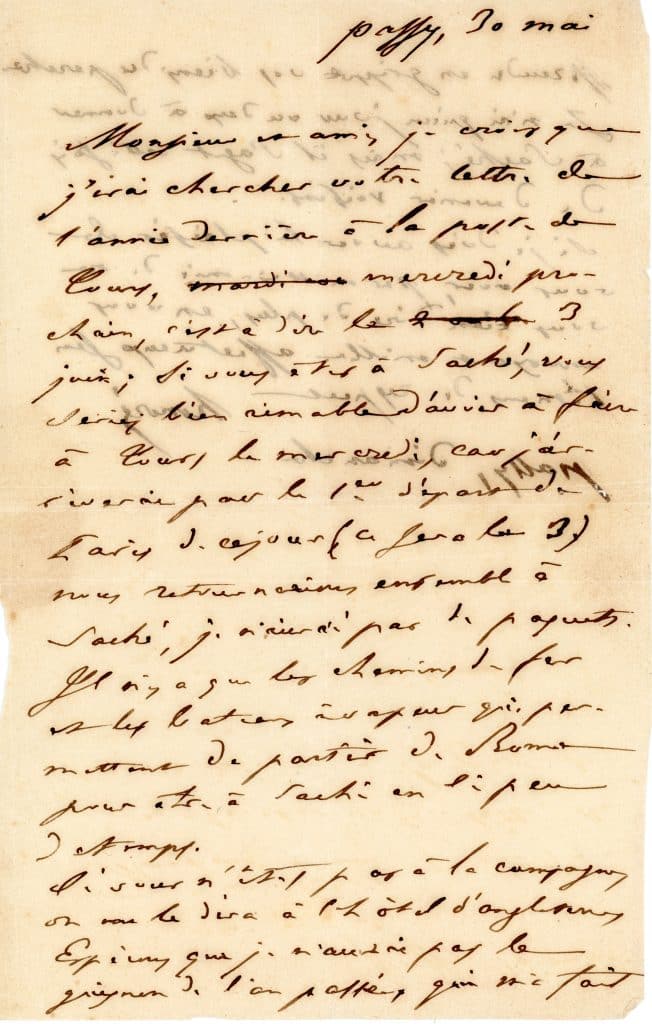 passy, 30 mai
Monsieur et ami, je crois que
j'irai chercher votre lettre de
l'année dernière à la poste de
Tours, mardi mercredi pro-
chain, c'est à dire le 3
juin; si vous êtes à Saché, vous
seriez bien aimable d'avoir à faire
à Tours le mercredi, car j'ar-
riverai par le 1er départ de
Paris de ce jour (ce sera le 3)
nous retournerions ensemble à
Saché, je n'aurai pas de paquets.
Il n'y a que les chemins de fer
et les bateaux à vapeur qui per-
mettent de partir de Rome
pour être à Saché en si peu
de temps.
Si vous n'étiez pas à la campagne,
on me le dira à l'hôtel d'angleterre,
Espérons que je n'aurai pas le
guignon de l'an passé, qui m'a fait